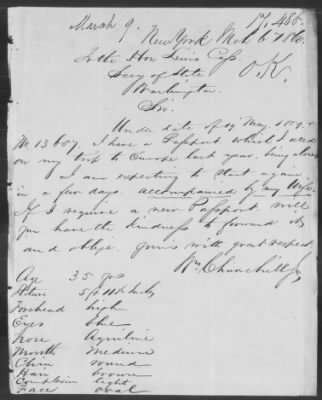 March 9.
17,460.
New York Mch 6 1860.
To the Hon Lewis Cass
O.K.
Secy of State
Washington
Sir
Under date of 19 May 1859 &
No 13657. I have a Passport which I used
on my trip to Europe last year, being alone
I am expecting to start again
in a few days. accompanied by my Wife.
If I require a new Passport will
you have the kindness to forward it
and oblige Yours with great respect.
Wm Churchill Jr
Age 35 yrs
Stature 5 ft 11½ inches
Forehead high
Eyes blue
Nose Aquiline
Mouth medium
Chin round
Hair brown
Complexion light
Face oval